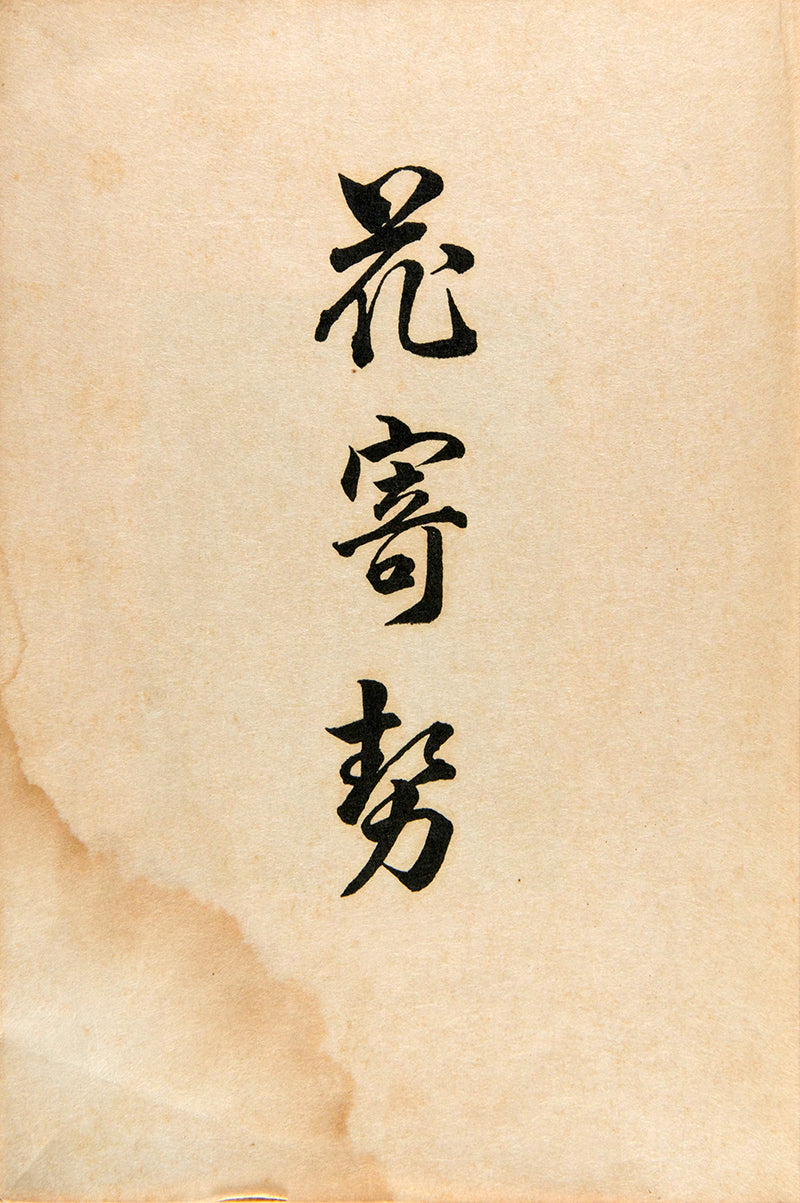 花寄勢